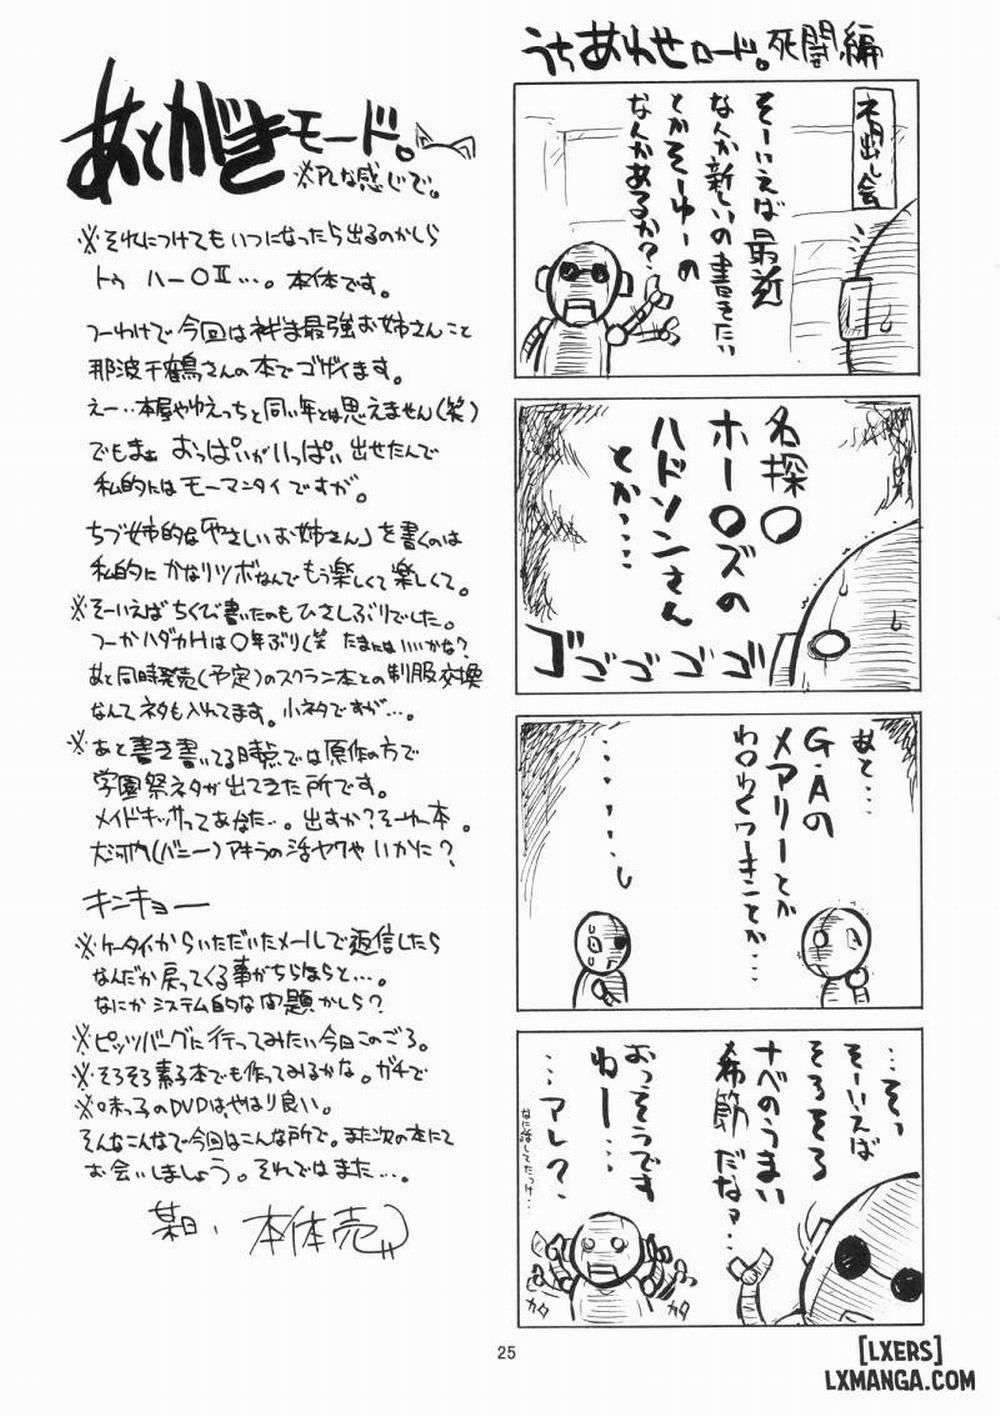 うちあわせロード。死闘編
ネタ出し会
そーいえば最近
なんか新しいの書きたい
とかそーゆーの
なんかあるか?
名探○
ホー○ズの
ハドソンさん
とか……
ゴゴゴゴゴ
あと…
G・Aの
メアリーとか
わ○わくワーキことか…
……し
…そぅ
そーいえば
そろそろ
ナベのうまい
希節だなァ…
おっそうです
ねー…
…アレ?
なに話してたっけ…
カタ
カタ
あとがきモード。
※アレな感じで。
※それにつけてもいつになったら出るのかしら
トゥハー○Ⅱ…。本体です。
つーわけで今回はネギま最強お姉さんこと
那波千鶴さんの本でゴザイます。
えー‥本屋やゆえっちと同い年とは思えません(笑)
でもまぁ おっぱいがいっぱい出せたんで
私的にはモーマンタイですが。
ちづ姉的な「やさしいお姉さん」を書くのは
私的にかなりツボなんでもう楽しくて楽しくて。
※そーいえばちくび書いたのもひさしぶりでした。
つーかハダカHは○年ぶり(笑 たまにはいいかな?
あと同時発売(予定)のスクラン本との制服交換
なんてネタも入れてます。小ネタですが…。
※あと書き書いてる時点では原作の方で
学園祭ネタが出てきた所です。
メイドキッサってあなた…。出すか?そーゆー本。
大河内(バニー)アキラの活ヤクやいかに?
キンキョー
※ケータイからいただいたメールで返信したら
なんだか戻ってくる事がちらほらと…。
なにかシステム的な問題かしら?
※ピッツバーグに行ってみたい今日このごろ。
※そろそろ素子本でも作ってみるかな。ガチで
※味っ子のDVDは、やはり良い。
そんなこんなで今回はこんな所で。また次の本にて
お会いしましょう。それではまた…。
某日、本体売
25
[LXERS]
LXMANGA.COM